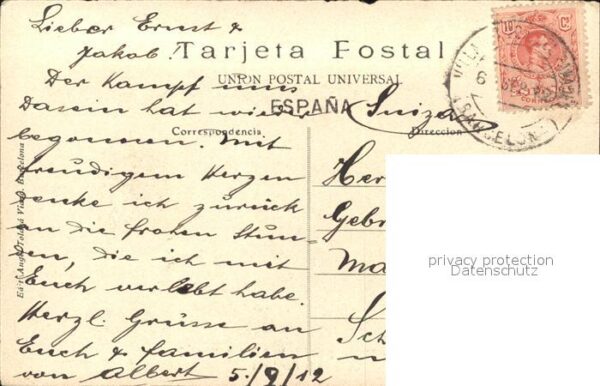 Lieber Ernst &
Jakob.
Tarjeta Postal
UNION POSTAL UNIVERSAL
ESPAÑA
Suiza
Correspondencia
Dirección
10 Cs
BARCELONA
Der Kampf ums
Dasein hat wieder
begonnen. Mit
freudigem Herzen
denke ich zurück
an die frohen Stun-
den, die ich mit
Euch verlebt habe.
Herzl. Grüsse an
Euch & familien
von Albert 5./9/12
Her
Gebr
Ma
Sch
privacy protection
Datenschutz
Barcelona